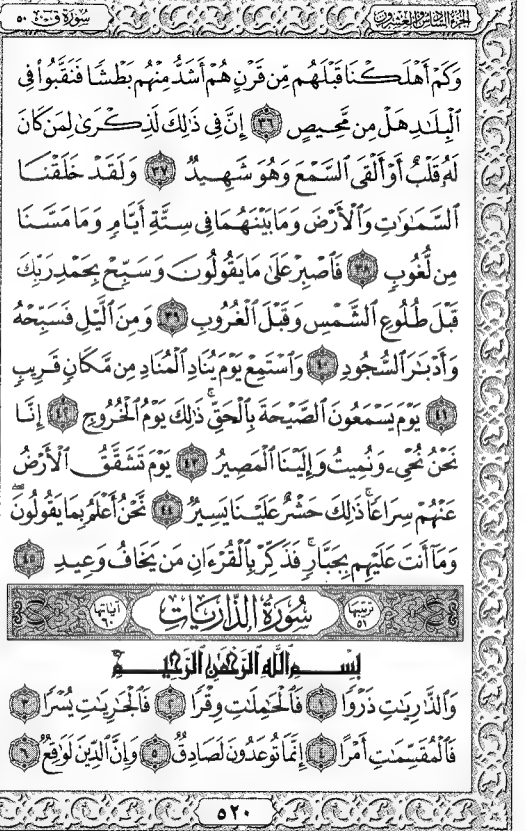 الجزء السادس والعشرون
سورة ق ٥٠
وَكَمْ أَهْلَكْنَا قَبْلَهُم مِّن قَرْنٍ هُمْ أَشَدُّ مِنْهُم بَطْشًا فَنَقَّبُوا۟ فِى
ٱلْبِلَٰدِ هَلْ مِن مَّحِيصٍ ٣٦ إِنَّ فِى ذَٰلِكَ لَذِكْرَىٰ لِمَن كَانَ
لَهُۥ قَلْبٌ أَوْ أَلْقَى ٱلسَّمْعَ وَهُوَ شَهِيدٌ ٣٧ وَلَقَدْ خَلَقْنَا
ٱلسَّمَٰوَٰتِ وَٱلْأَرْضَ وَمَا بَيْنَهُمَا فِى سِتَّةِ أَيَّامٍ وَمَا مَسَّنَا
مِن لُّغُوبٍ ٣٨ فَٱصْبِرْ عَلَىٰ مَا يَقُولُونَ وَسَبِّحْ بِحَمْدِ رَبِّكَ
قَبْلَ طُلُوعِ ٱلشَّمْسِ وَقَبْلَ ٱلْغُرُوبِ ٣٩ وَمِنَ ٱلَّيْلِ فَسَبِّحْهُ
وَأَدْبَٰرَ ٱلسُّجُودِ ٤٠ وَٱسْتَمِعْ يَوْمَ يُنَادِ ٱلْمُنَادِ مِن مَّكَانٍ قَرِيبٍ
٤١ يَوْمَ يَسْمَعُونَ ٱلصَّيْحَةَ بِٱلْحَقِّ ۚ ذَٰلِكَ يَوْمُ ٱلْخُرُوجِ ٤٢ إِنَّا
نَحْنُ نُحْىِۦ وَنُمِيتُ وَإِلَيْنَا ٱلْمَصِيرُ ٤٣ يَوْمَ تَشَقَّقُ ٱلْأَرْضُ
عَنْهُمْ سِرَاعًا ۚ ذَٰلِكَ حَشْرٌ عَلَيْنَا يَسِيرٌ ٤٤ نَّحْنُ أَعْلَمُ بِمَا يَقُولُونَ ۖ
وَمَآ أَنتَ عَلَيْهِم بِجَبَّارٍ ۖ فَذَكِّرْ بِٱلْقُرْءَانِ مَن يَخَافُ وَعِيدِ ٤٥
ترتيبها ٥١ سُورَةُ الذَّارِيَات آياتها ٦٠
بِسْمِ ٱللَّهِ ٱلرَّحْمَٰنِ ٱلرَّحِيمِ
وَٱلذَّٰرِيَٰتِ ذَرْوًا ١ فَٱلْحَٰمِلَٰتِ وِقْرًا ٢ فَٱلْجَٰرِيَٰتِ يُسْرًا ٣
فَٱلْمُقَسِّمَٰتِ أَمْرًا ٤ إِنَّمَا تُوعَدُونَ لَصَادِقٌ ٥ وَإِنَّ ٱلدِّينَ لَوَٰقِعٌ ٦
٥٢٠